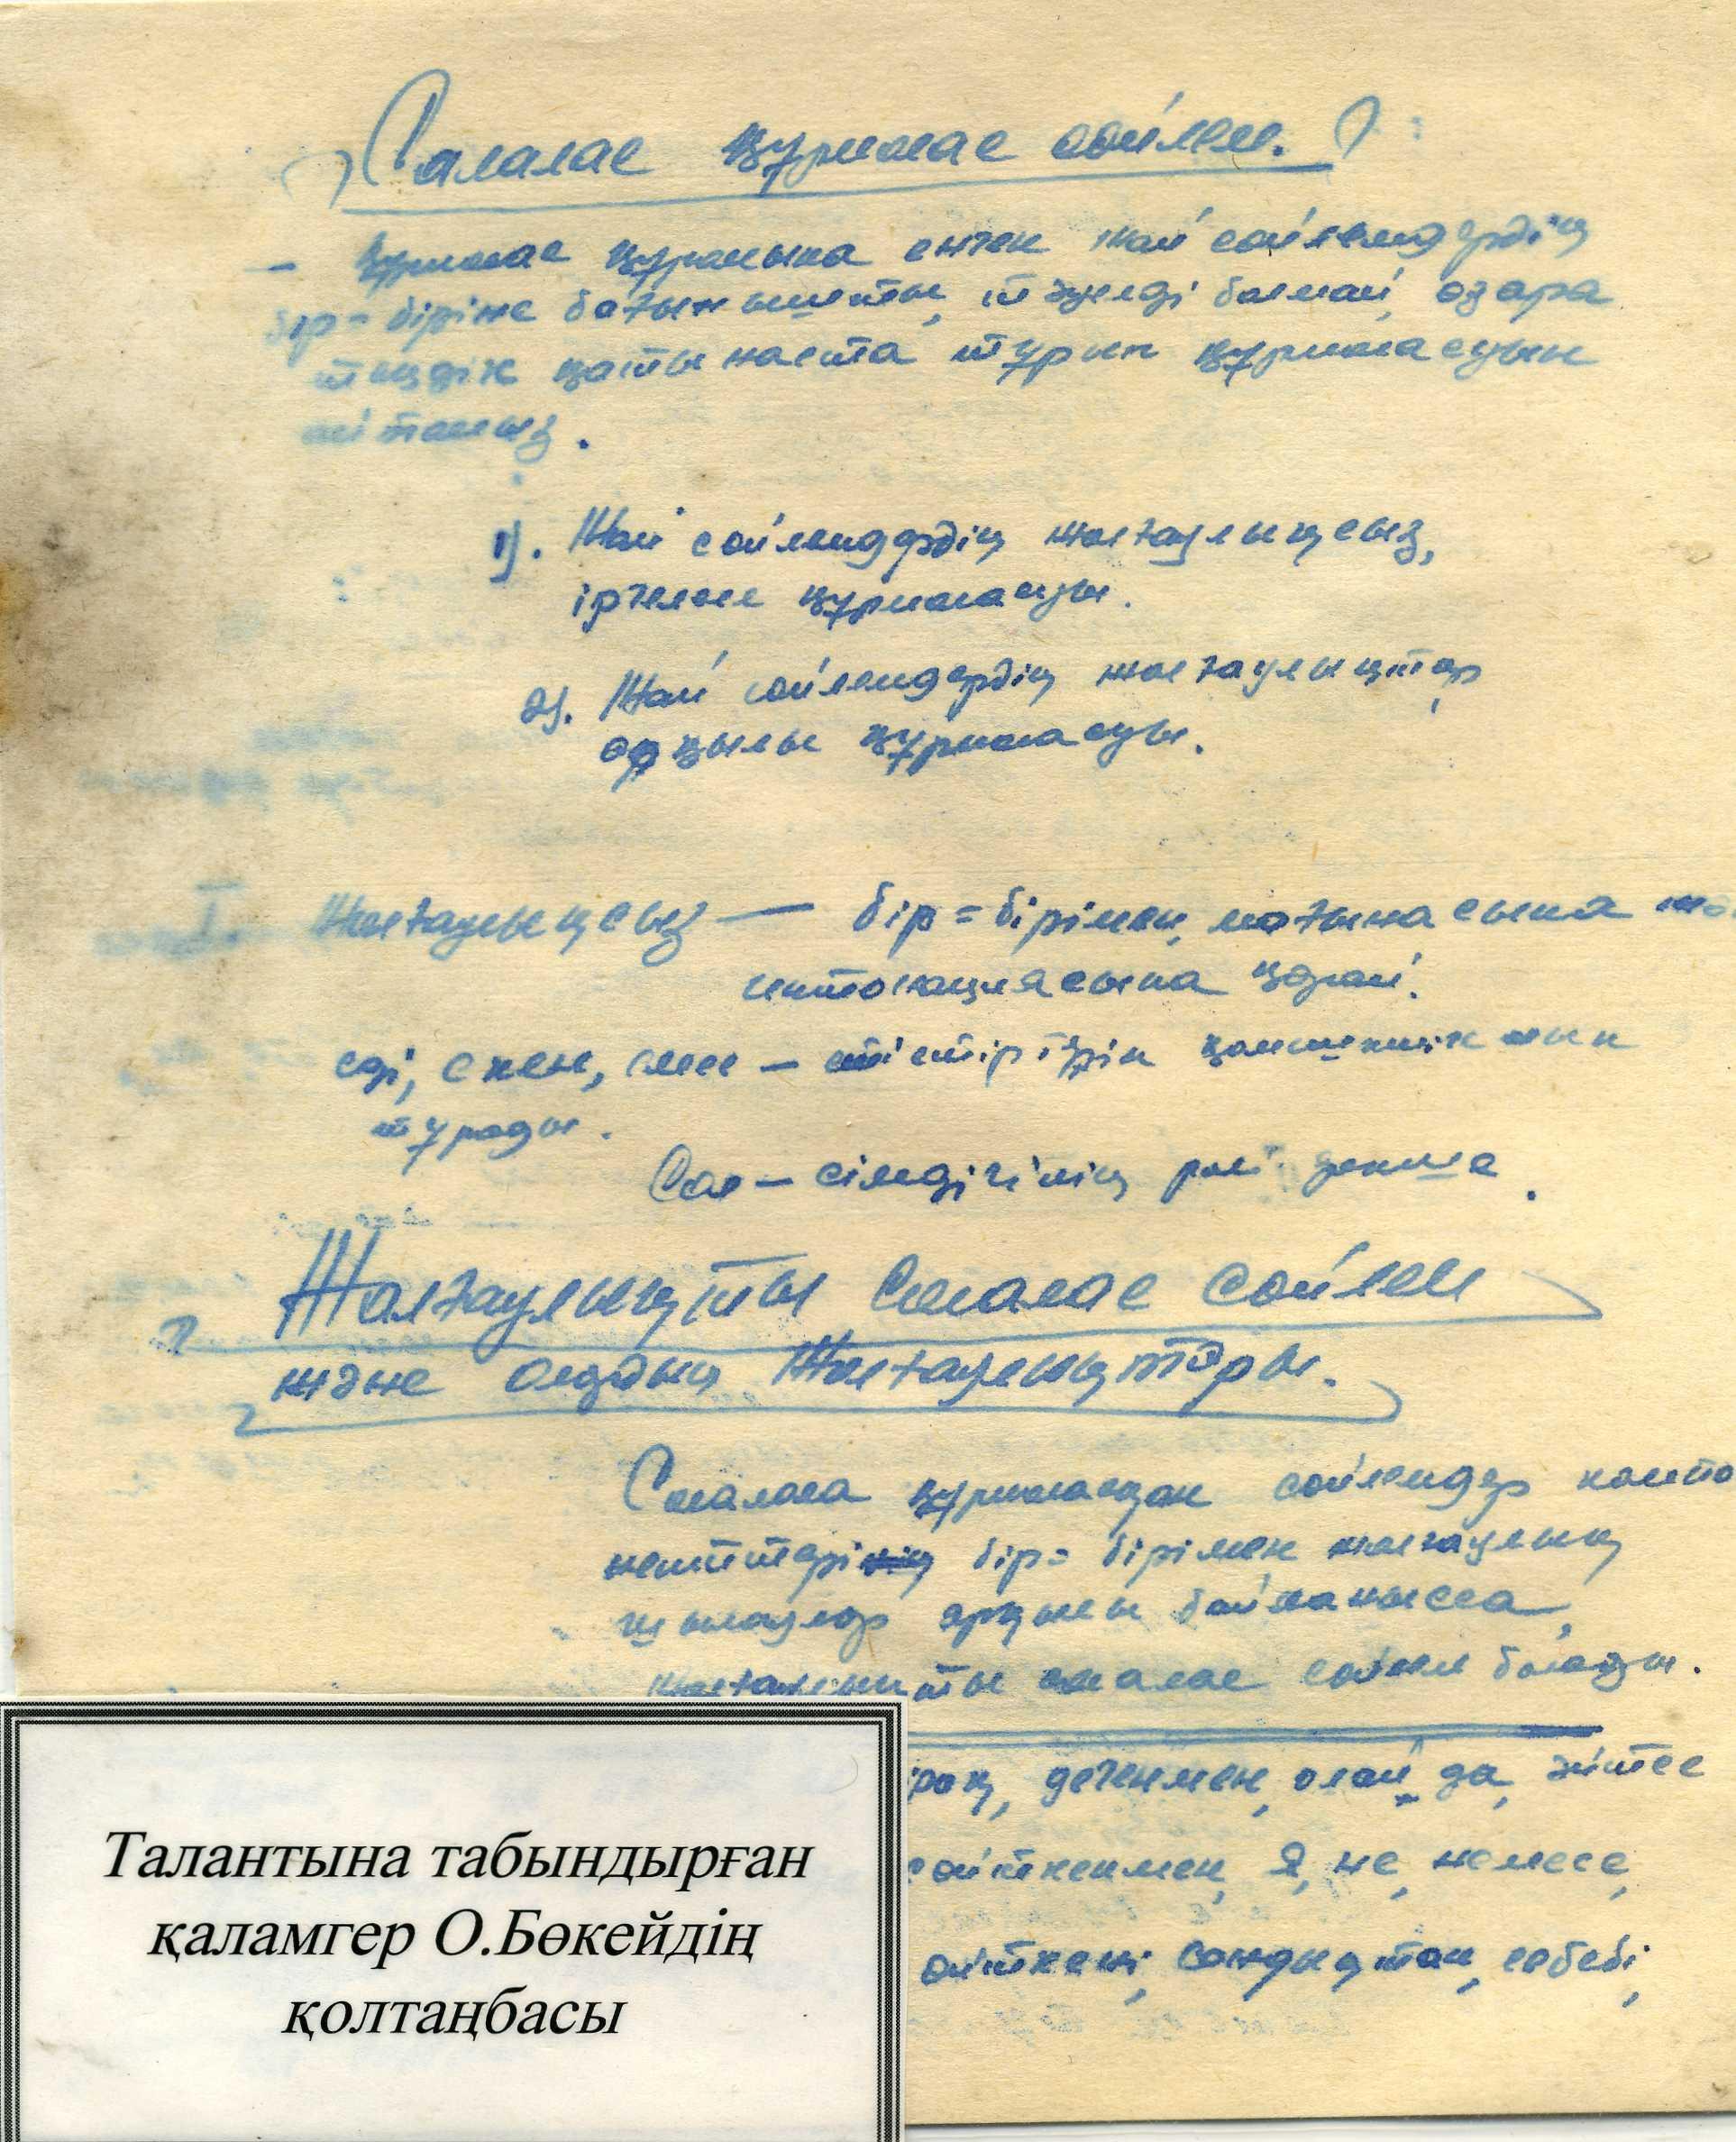 Салалас құрмалас сөйлем.
— Құрмалас құрамына енген жай сөйлемдердің
бір=біріне бағынышты, тәуелді болмай, өзара
теңдік қатынаста тұрып құрмаласуын
айтамыз.
1). Жай сөйлемдердің жалғаулықсыз,
іргелес құрмаласуы.
2). Жай сөйлемдердің жалғаулықтар
арқылы құрмаласуы.
Жалғаулықсыз — бір=бірімен, мағынасына
интонациясына қарай.
еді, екен, емес — тұрады.
Сол — сілтеуінің рөлі
Жалғаулықты Салалас сөйлем
және олардың Жалғаулықтары.
Салаласа құрмаласқан сөйлемдер компо
ненттері бір=бірімен жалғаулық
шылаулар арқылы байланысса,
жалғаулықты салалас сөйлем болады.
рақ, дегенмен, олай да, әйтсе
сөйткенмен, Я, не, немесе,
өйткені, сондықтан, себебі,
Талантына табындырған
қаламгер О.Бөкейдің
қолтаңбасы